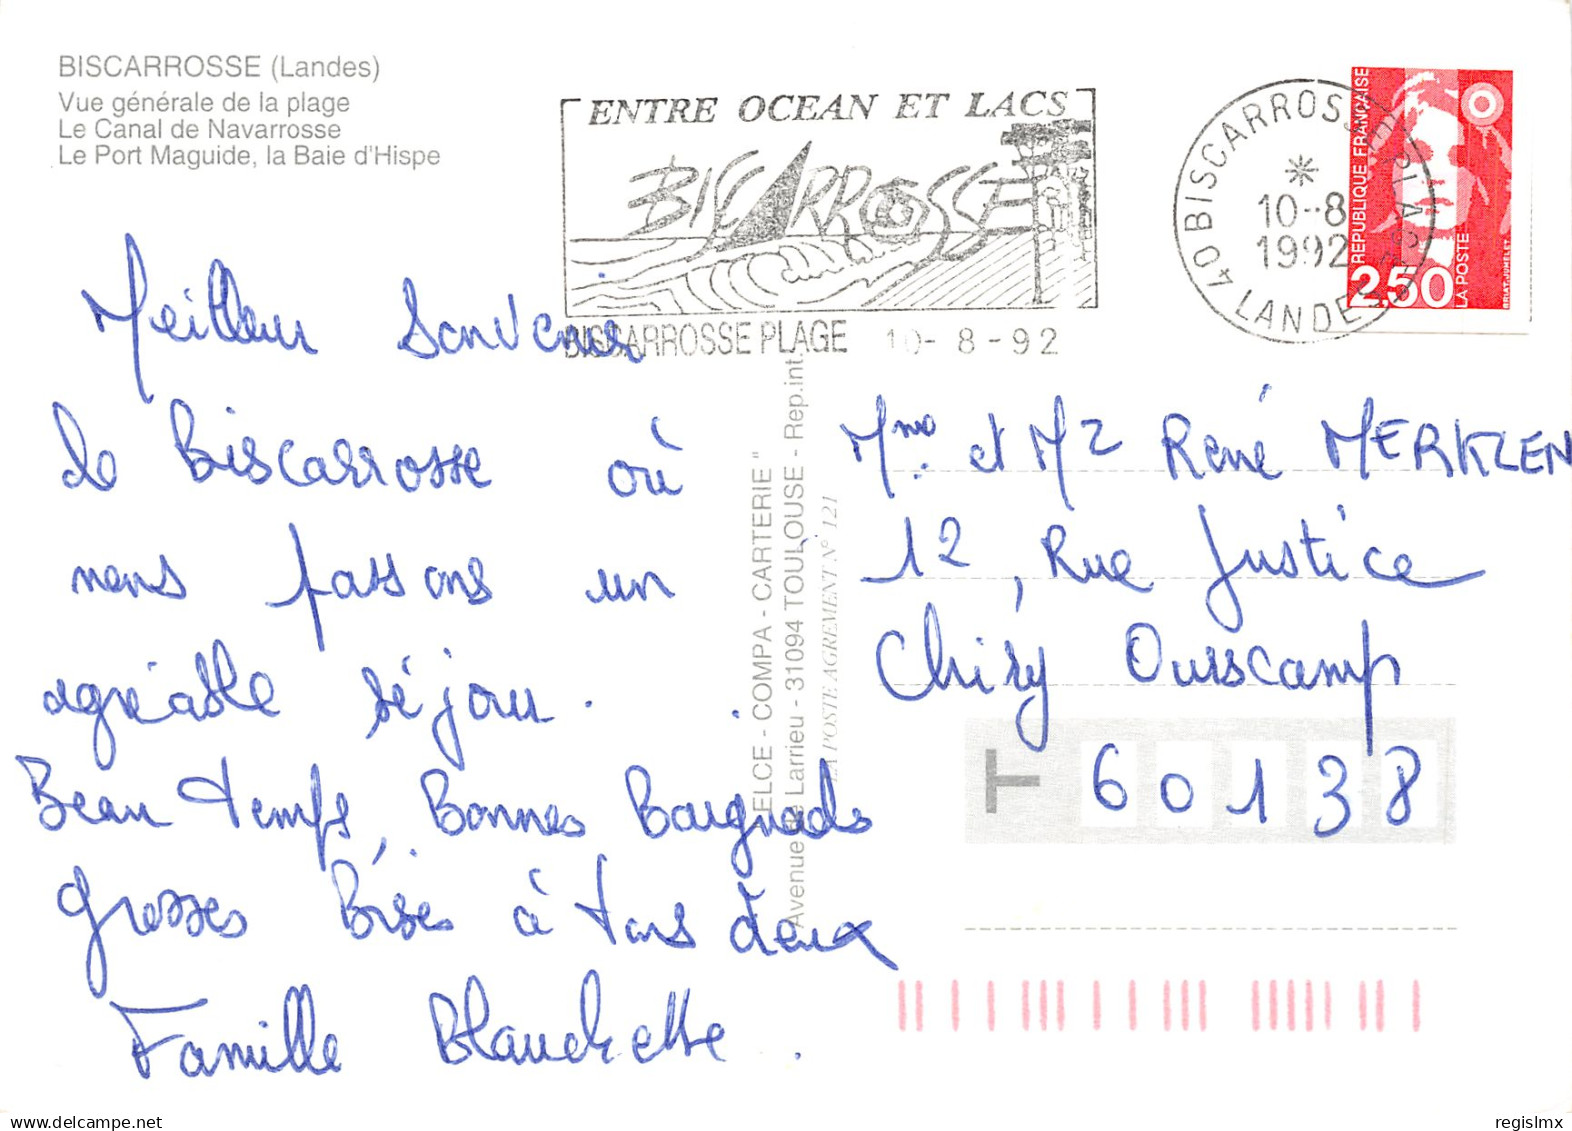 BISCARROSSE (Landes)
Vue générale de la plage
Le Canal de Navarrosse
Le Port Maguide, la Baie d'Hispe
ENTRE OCEAN ET LACS
BISCARROSSE
BISCARROSSE PLAGE 10-8-92
40 BISCARROSSE PLAGE
10-8
1992
LANDES
REPUBLIQUE FRANÇAISE
2,50
LA POSTE
BRIAT-JUMELET
Meilleur Souvenir
de Biscarrosse où
nous passons un
agréable séjour.
Beau temps, Bonnes Baignades
grosses Bises à tous deux
Famille Blanchette.
ELCE - COMPA - CARTERIE "
Avenue de Larrieu - 31094 TOULOUSE - Rep.int.
LA POSTE AGREMENT N° 121
Mme et Mr René MERKLEN
12, Rue Justice
Chiry Ourscamp
T 60138
regislmx